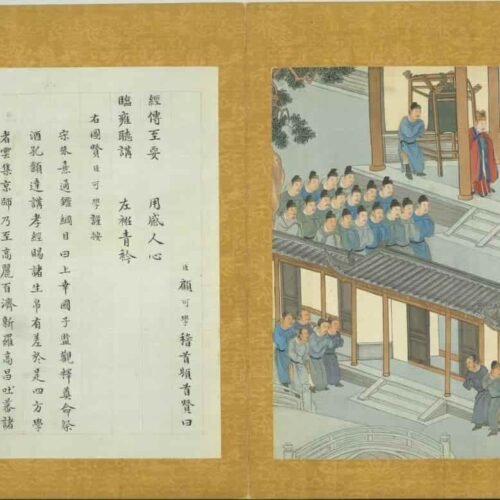 臣顧可學稽首頓首贊曰
經傳至要 用感人心
臨雍聽講 左衽青衿
右圖贊臣可學謹按
宋朱熹通鑑綱目曰上幸國子監觀釋奠命祭
酒孔穎達講孝經賜諸生帛有差於是四方學
者雲集京師乃至高麗百濟新羅高昌吐蕃諸